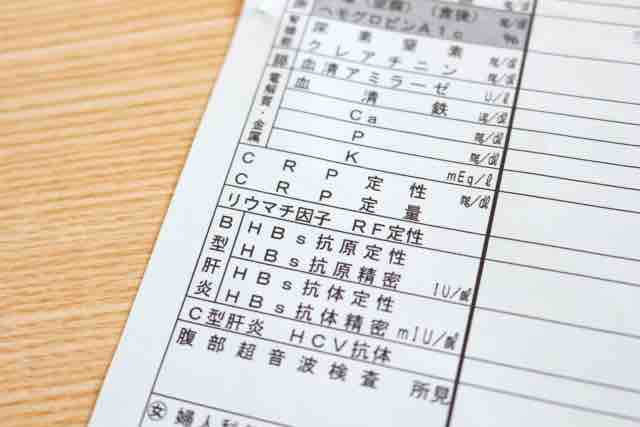 （空腹）（食後） mg/dl
ヘモグロビンA1c %
腎 尿素窒素 mg/dl
クレアチニン mg/dl
膵 血清アミラーゼ U/l
電解質・金属 血清鉄 μg/dl
Ca mg/dl
P mg/dl
K mEq/l
CRP定性
CRP定量 mg/dl
リウマチ因子 RF定性
B型肝炎 HBs抗原定性
HBs抗原精密 IU/ml
HBs抗体定性
HBs抗体精密 mIU/ml
C型肝炎 HCV抗体
腹部超音波検査 所見
女 婦人科